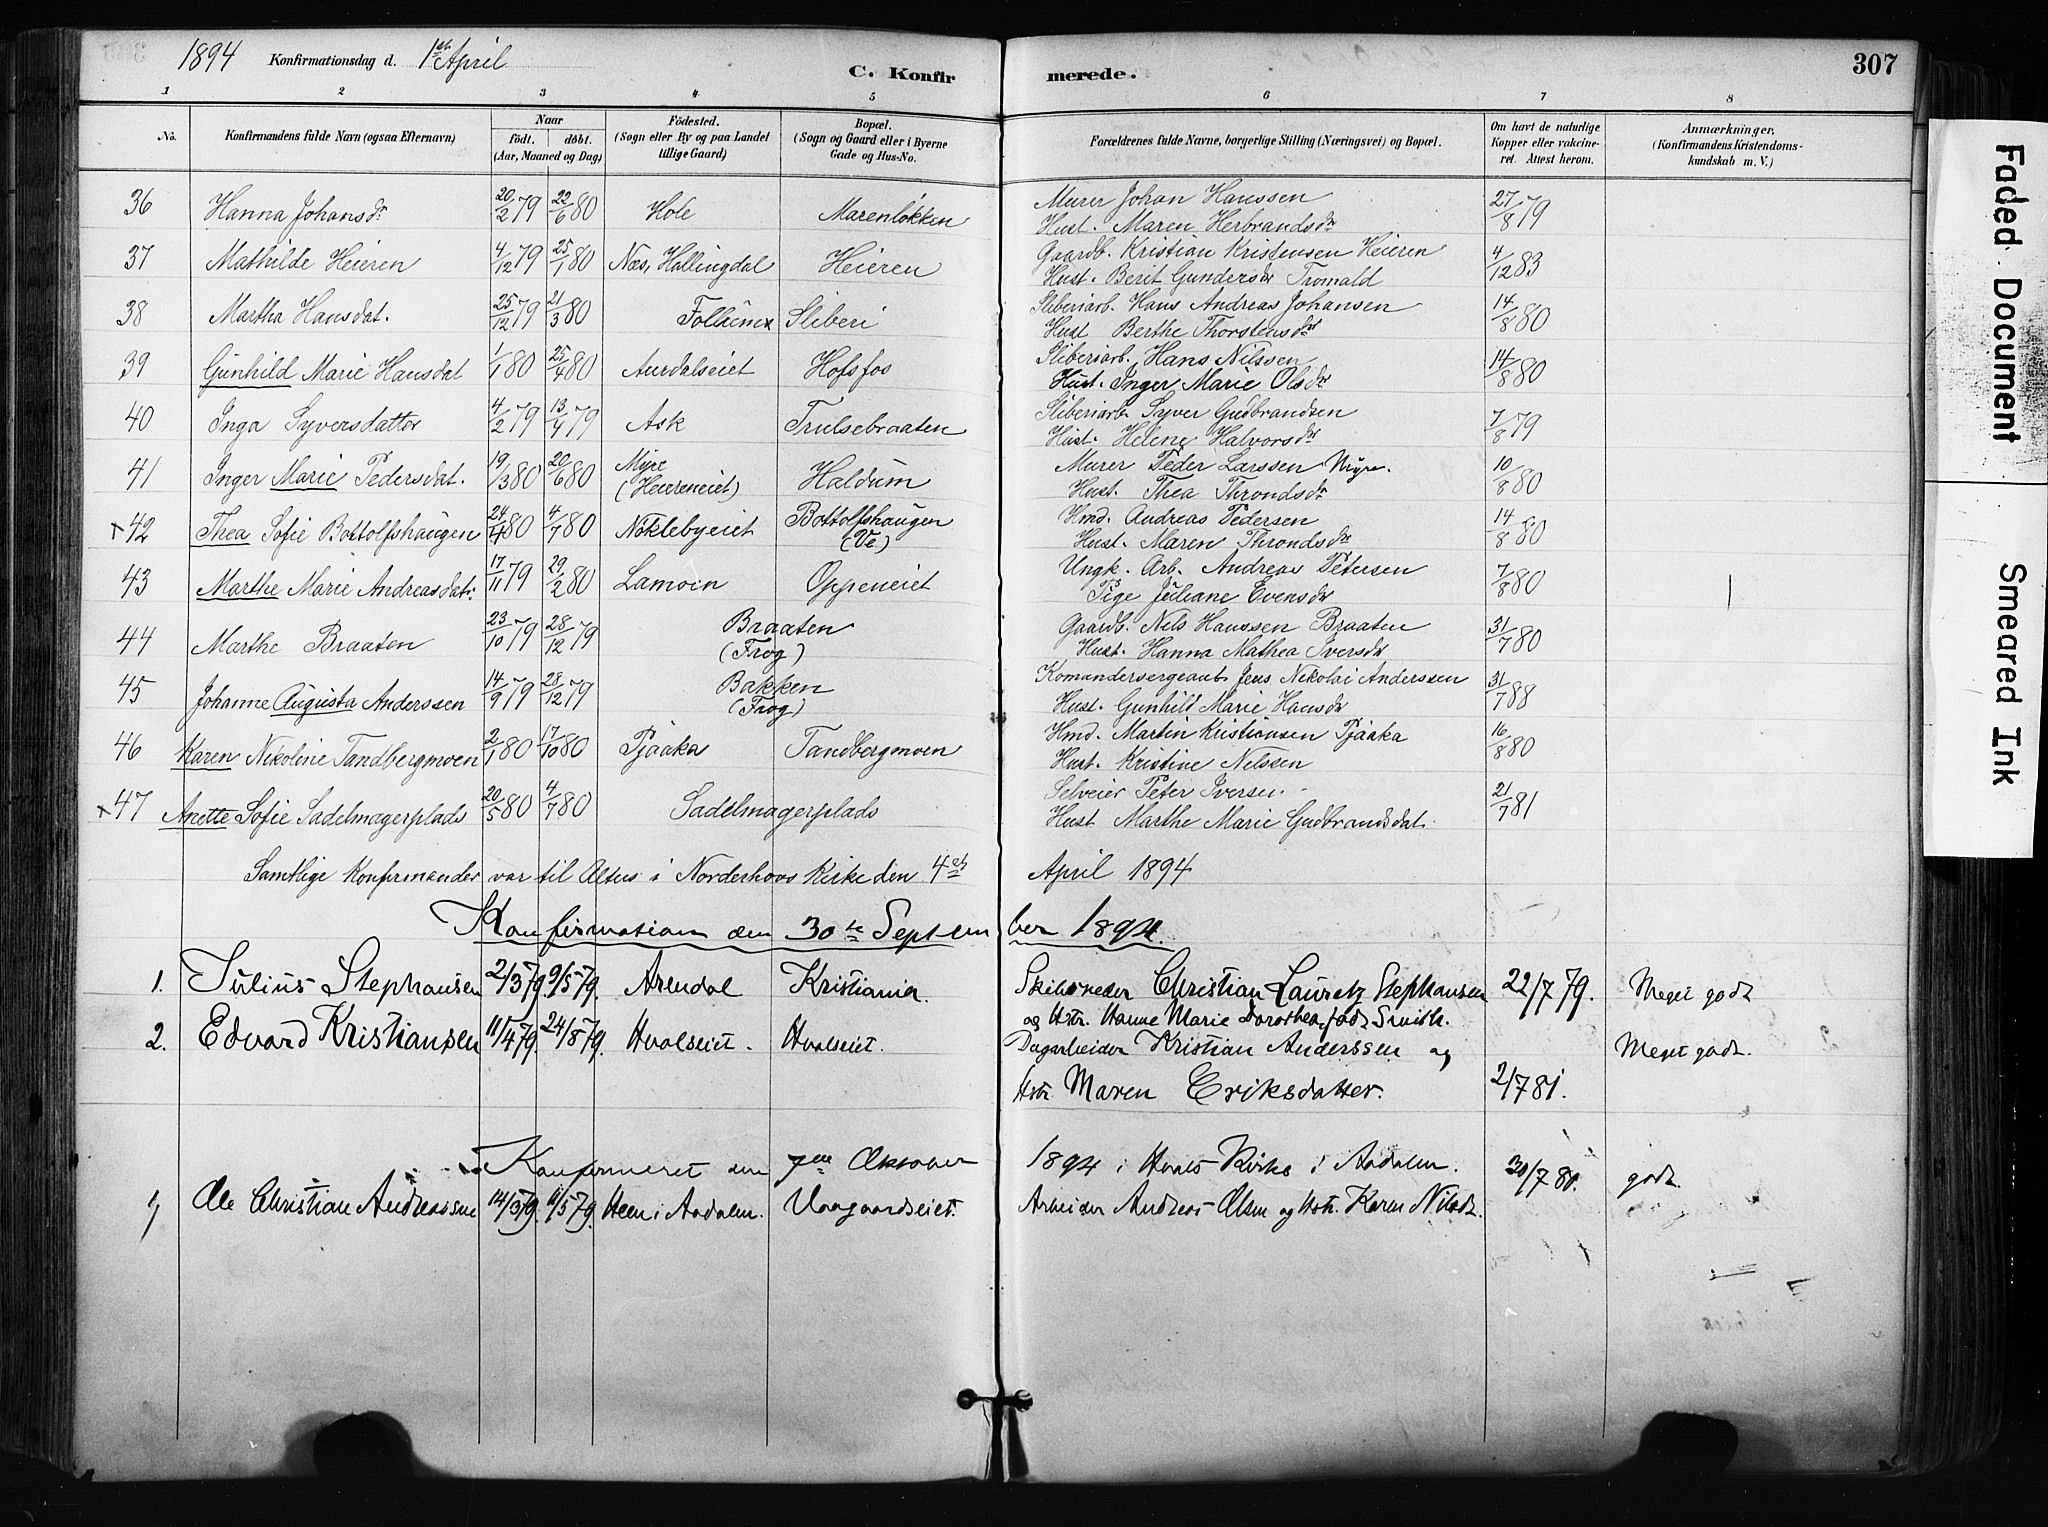 1894 Konfirmationsdag d. 1ste April
C. Konfirmerede.
307
1 2 3 4 5 6 7 8
No.
Konfirmandens fulde Navn (ogsaa Efternavn)
Naar
födt. döbt.
(Aar, Maaned og Dag)
Födested.
(Sogn eller By og paa Landet
tillige Gaard)
Bopæl.
(Sogn og Gaard eller i Byerne
Gade og Hus-No.
Forældrenes fulde Navne, borgerlige Stilling (Næringsvei) og Bopæl.
Om havt de naturlige
Kopper eller vakcine-
ret. Attest herom.
Anmærkninger.
(Konfirmandens Kristendoms-
kundskab m. V.)
36 Hanna Johansdr 20/2 79 22/6 80 Hole Marenlökken Murer Johan Hanssen 27/8 79
Hust. Maren Herbrandsdr
37 Mathilde Heieren 4/12 79 25/1 80 Næs, Hallingdal Heieren Gaardb. Kristian Kristensen Heieren 4/12 83
Hust. Berit Gundersdr Tromald
38 Martha Hansdat. 25/12 79 21/3 80 Follum Sliberi Sliberiarb. Hans Andreas Johansen 14/8 80
Hust Berthe Thorstensdr
39 Gunhild Marie Hansdat 1/1 80 25/4 80 Aurdalseiet Hofsfos Sliberiarb. Hans Nilssen 14/8 80
Hust. Inger Marie Olsdr
40 Inga Syversdatter 4/2 79 13/4 79 Ask Trulsebraaten Sliberiarb. Syver Gudbrandsen 7/8 79
Hust. Helene Halvorsdr
41 Inger Marie Pedersdat. 19/3 80 20/6 80 Myre (Heiereneiet) Haldum Murer Peder Larssen Myre. 10/8 80
Hust. Thea Throndsdr
x 42 Thea Sofie Bottolfshaugen 24/4 80 4/7 80 Nöklebyeiet Bottolfshaugen (Ve) Hmd. Andreas Pedersen 14/8 80
Hust. Maren Throndsdr
43 Marthe Marie Andreasdatr. 17/11 79 29/2 80 Lamoen Oppeneiet Ungk. Arb. Andreas Petersen 7/8 80
Pige Juliane Evensdr
44 Marthe Braaten 23/10 79 28/12 79 Braaten (Frog) Gaardb. Nils Hanssen Braaten 31/7 80
Hust. Hanna Mathea Iversdr
45 Johanne Augusta Anderssen 14/9 79 28/12 79 Bakken (Frog) Komandersergeant Jens Nikolai Anderssen 31/7 88
Hust. Gunhild Marie Hansdr
46 Karen Nikoline Tandbergmoen 2/1 80 17/10 80 Pjaaka Tandbergmoen Hmd. Martin Kristiansen Pjaaka 16/8 80
Hust. Kristine Nelssen
x 47 Anette Sofie Sadelmagerplads 20/5 80 4/7 80 Sadelmagerplads Selveier Peter Iversen 21/7 81
Hust Marthe Marie Gudbrandsdat.
Samtlige Konfirmander var til Alters i Norderhovs Kirke den 4de April 1894
Konfirmation den 30te September 1894.
1. Julius Stephansen 2/3 79. 9/5 79. Arendal Kristiania. Skibsreder Christian Lauretz Stephansen 22/7 79. Meget godt
og Hstr. Hanne Marie Dorothea, født Smith.
2. Edvard Kristiansen 11/4 79. 24/8 79. Hvalseiet. Hvalseiet. Dagarbeider Kristian Anderssen og Meget godt.
Hstr. Maren Eriksdatter. 2/7 81.
Konfirmeret den 7de Oktober 1894 i Hvals Kirke i Aadalen. 30/7 80. godt.
1/ Ole Christian Andreassen 14/3 79. 11/5 79. Heen i Aadalen. Vaagaardseiet. Arbeider Andreas Olsen og Hstr. Karen Nilsdt.
Faded Document
Smeared Ink